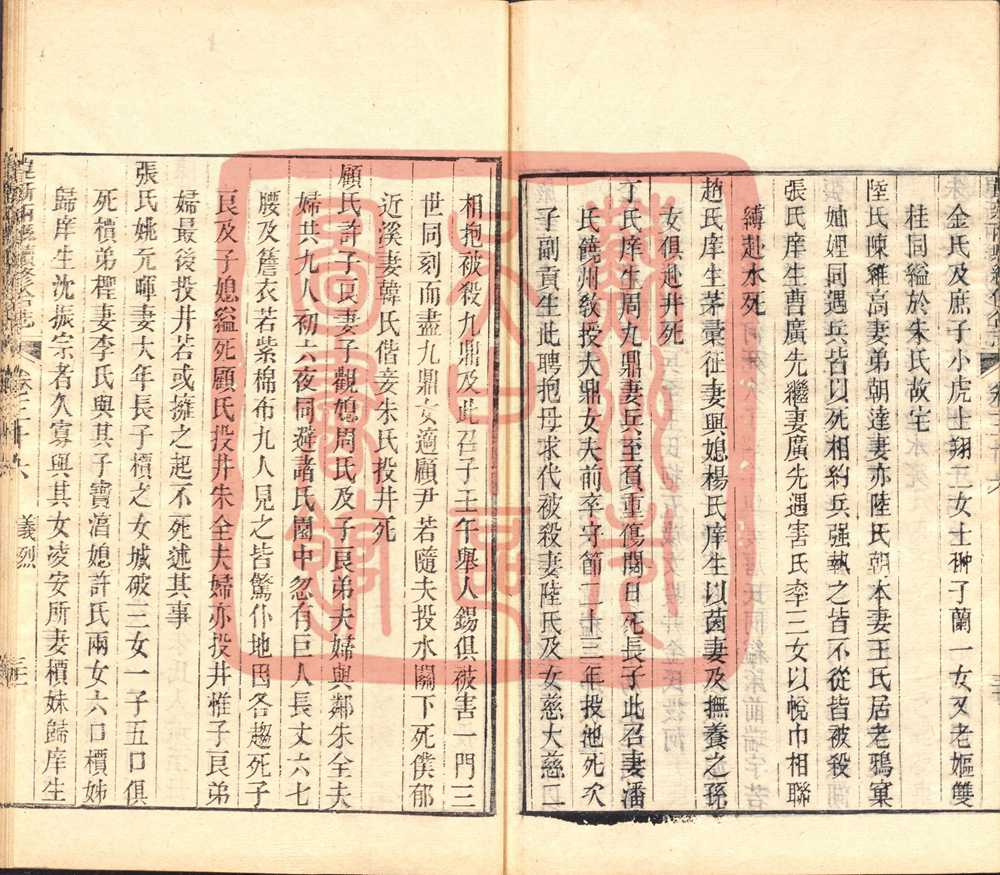 金氏及庶子小虎士翔三女士翀子蘭一女又老嫗雙
桂同縊於朱氏故宅
陸氏陳維高妻弟朝達妻亦陸氏朝本妻王氏居老鴉窠
妯娌同遇兵皆以死相約兵强執之皆不從皆被殺
張氏庠生曹廣先繼妻廣先遇害氏率二女以帨巾相聯
縛赴水死
趙氏庠生茅橐征妻與媳楊氏庠生以茵妻及撫養之孫
女俱赴井死
丁氏庠生周九鼎妻兵至負重傷閱日死長子此召妻潘
氏饒州敎授大鼎女夫前卒守節二十三年投池死次
子副貢生此聘抱母求代被殺妻陸氏及女慈大慈二
相抱被殺九鼎及此召子壬午舉人錫俱被害一門三
世同刻而盡九鼎女適顧尹若隨夫投水關下死僕郁
近溪妻韓氏偕妾朱氏投井死
顧氏許子良妻子觀媳周氏及子良弟夫婦與鄰朱全夫
婦共九人初六夜同避諸氏園中忽有巨人長丈六七
腰及簷衣若紫棉布九人見之皆驚仆地因各趨死子
良及子媳縊死顧氏投井朱全夫婦亦投井惟子良弟
婦最後投井若或擁之起不死述其事
張氏姚允暉妻大年長子櫝之女城破三女一子五口俱
死櫝弟樫妻李氏與其子寶滈媳許氏兩女六口櫝姊
歸庠生沈振宗者久寡與其女凌安所妻櫝妹歸庠生
義烈